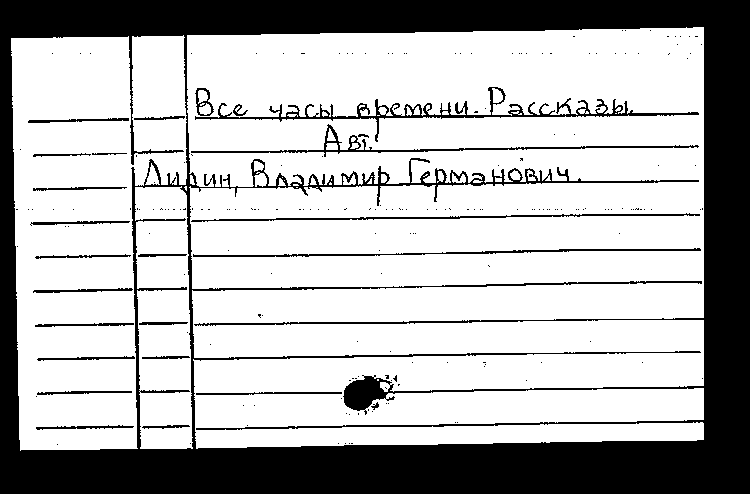 Все часы времени. Рассказы.
Авт.
Лидин, Владимир Германович.